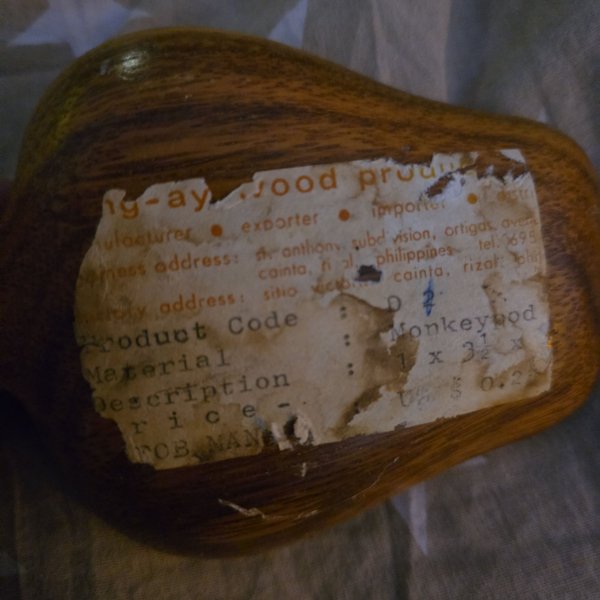 ng-ay wood produ
ufacturer • exporter • importer •
ness address: st. anthony subdivision, ortigas ave
cainta, rizal philippines tel. 695
ory address: sitio cainta, rizal phi
Product Code : D 2
Material : Monkeypod
Description : 1 x 3½ x
rice - US $ 0.2
FOB MAN